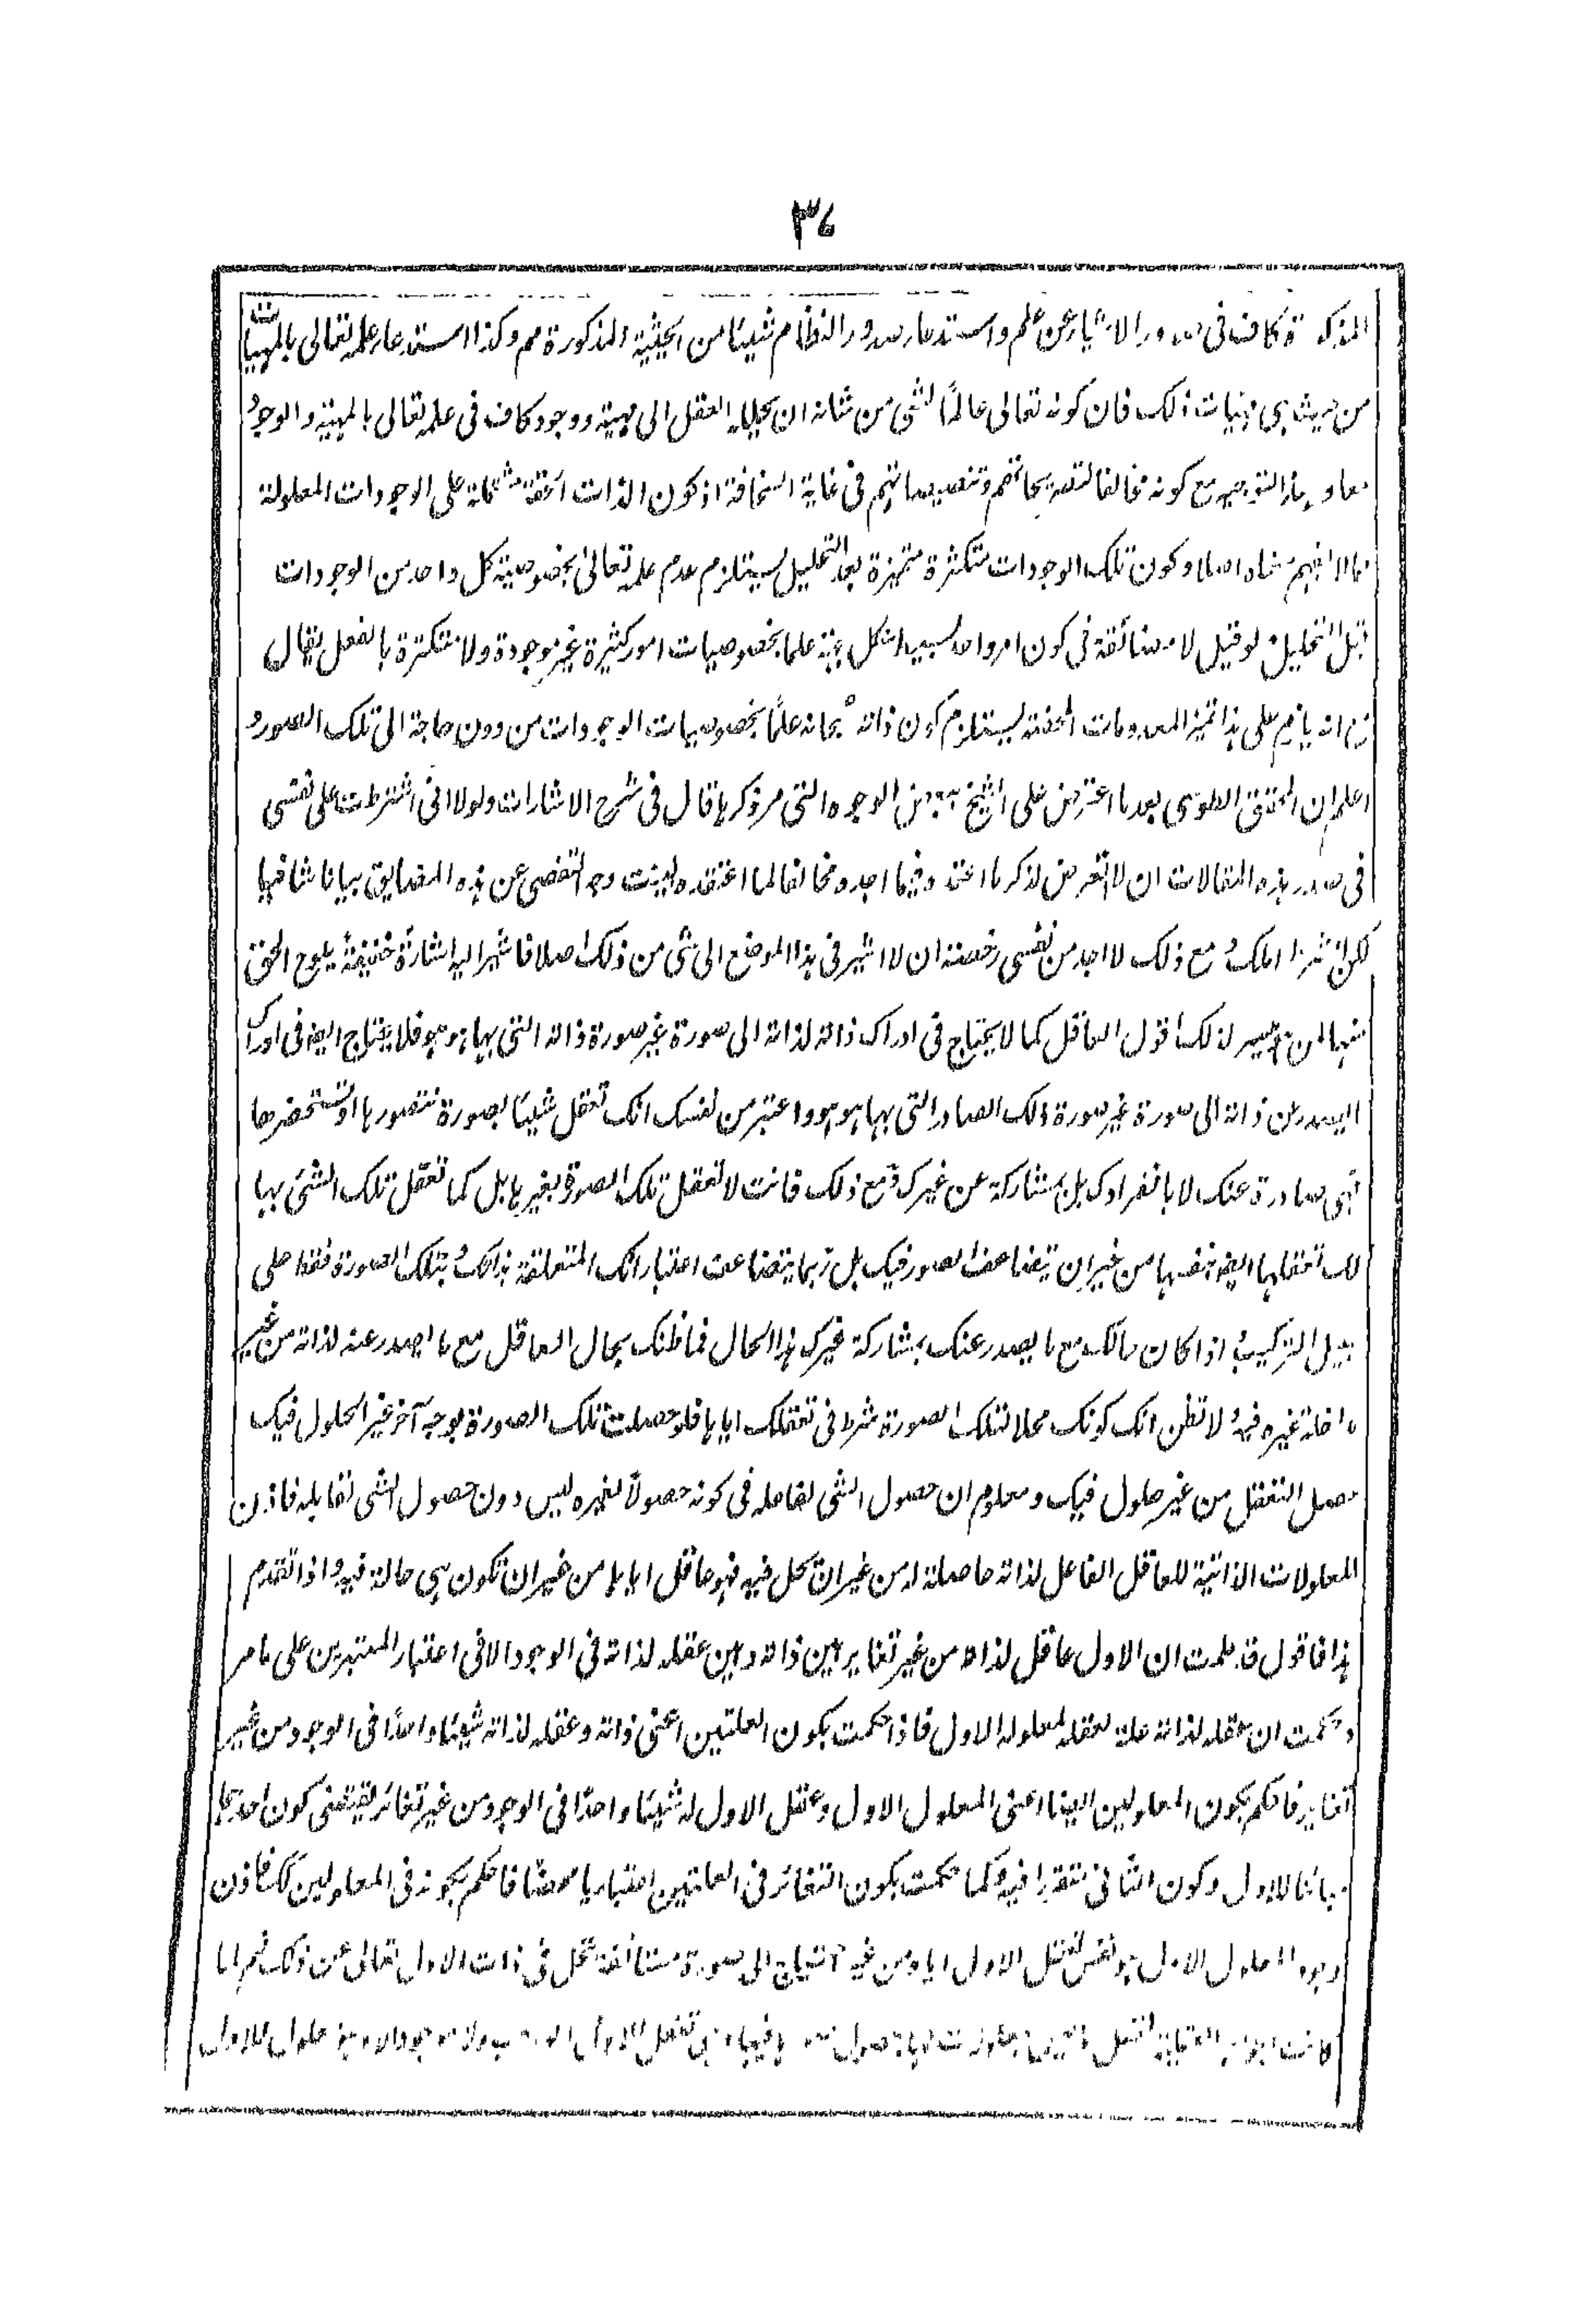 ٣٦
المذكورة كاف في صدور الاشياء عن علم واستدعاء صدور النظام شيئا من الحيثية المذكورة مم وكذا استدعاء علمه تعالى بالمهيات
من حيث هي مهيات ذلك فان كونه تعالى عالمًا لشئ من شانه ان يحلله العقل الى مهية ووجود كاف في علمه تعالى بالمهية والوجود
معا و هذا التوجيه مع كونه مخالفا لتصريحاتهم وتنصيصاتهم في غاية السخافة اذ كون الذات الحقة مشتملة على الوجودات المعلولة
مما لا يفهم معناه اصلا وكون تلك الوجودات متكثرة متميزة بعد التحليل يستلزم عدم علمه تعالى بخصوصية كل واحد من الوجودات
قبل التحليل لو قيل لا مضائقة في كون امر واحد بسيط علما بخصوصيات امور كثيرة غير موجودة ولا متكثرة بالفعل يقال
انه يلزم على هذا تميز المعدومات المحضة يستلزم كون ذاته سبحانه علمًا بخصوصيات الوجودات من دون حاجة الى تلك الصور و
اعلم ان المحقق الطوسي بعد ما اعترض على الشيخ من الوجوه التي مر ذكرها قال في شرح الاشارات ولولا اني اشترطت على نفسي
في صدر هذه المقالات ان لا اتعرض لذكر ما اعتمد فيما اجده مخالفا لما اعتقده لبينت وجه التفصي عن هذه المضايق بيانا شافيا
لكن الشرط املك مع ذلك لا اجد من نفسي رخصة ان لا اشير في هذا الموضع الى شئ من ذلك اصلا فاشير اليه اشارة خفيفة يلوح الحق
منها لمن هو ميسر لذلك اقول العاقل كما لا يحتاج في ادراك ذاته لذاته الى صورة غير صورة ذاته التي بها هو هو فلا يحتاج ايضا في ادراك
ما يصدر عن ذاته الى صورة غير صورة ذلك الصادر التي بها هو هو واعتبر من نفسك انك تعقل شيئا بصورة تتصورها او تستحضرها
فهي صادرة عنك لا بانفرادك بل بمشاركة عن غيرك و مع ذلك فانت لا تعقل تلك الصورة بغيرها بل كما تعقل تلك الشئ بها
كذلك تعقلها ايضا بنفسها من غير ان تتضاعف الصور فيك بل ربما يتضاعف اعتباراتك المتعلقة بذاتك و بتلك الصورة فقط على
سبيل التركيب و اذا كان حالك مع ما يصدر عنك بمشاركة غيرك هذا الحال فما ظنك بحال العاقل مع ما يصدر عنه لذاته من غير
مداخلة غيره فيه و لا تظن انك كونك محلا لتلك الصورة شرط في تعقلك اياها فلو حصلت تلك الصورة بوجه آخر غير الحلول فيك
حصل التعقل من غير حلول فيك ومعلوم ان حصول الشئ لفاعله في كونه حصولًا لغيره ليس دون حصول الشئ لقابله فاذن
المعلولات الذاتية للعاقل الفاعل لذاته حاصلة له من غير ان تحل فيه فهو عاقل اياها من غير ان تكون هي حالة فيه و اذا تقدم
هذا فاقول قد علمت ان الاول عاقل لذاته من غير تغاير بين ذاته وبين عقله لذاته في الوجود الا في اعتبار المعتبرين على ما مر
وحكمت ان عقله لذاته علة لعقله لمعلوله الاول فاذا حكمت بكون العلتين اعني ذاته وعقله لذاته شيئا واحدًا في الوجود من غير
تغاير فاحكم بكون المعلولين ايضا اعني المعلول الاول وعقل الاول له شيئا واحدًا في الوجود من غير تغائر يقتضي كون احدهما
مبائنا للاول وكون الثاني متقررا فيه و كما حكمت بكون التغائر في العلتين اعتباريا محضًا فاحكم بكونه في المعلولين كذلك فاذن
وجود المعلول الاول هو نفس تعقل الاول اياه من غير احتياج الى صورة مستأنفة تحل في ذات الاول تعالى عن ذلك ثم لما
كانت الجواهر العقلية تعقل ما ليس بمعلولات لها بحصول صور فيها وهي تعقل الاول الواجب ولا موجود الا وهو معلول للاول